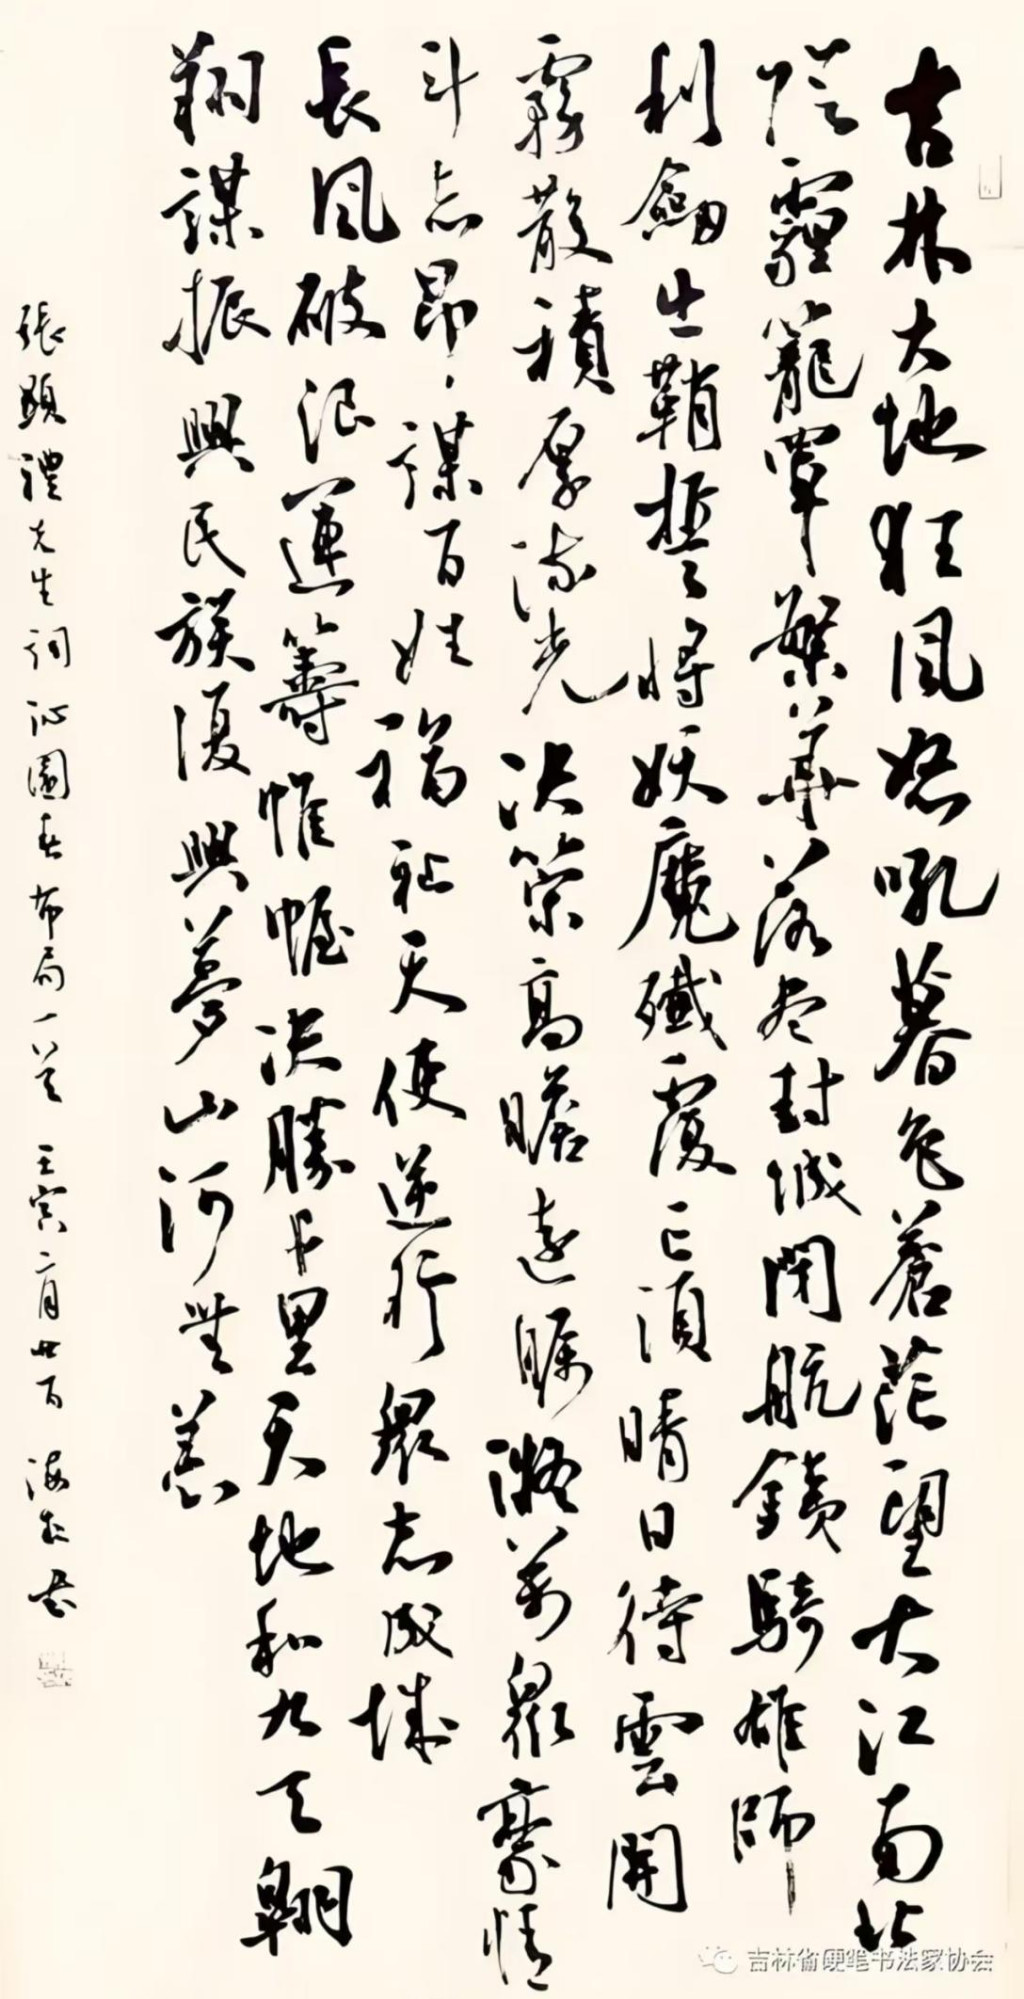 吉林大地狂風怒吼暮色蒼茫望大江南北
陰霾籠罩繁華落盡封城閉航鐵騎雄師
利劍出鞘誓將妖魔殲覆亡須晴日待雲開
霧散積厚流光決策高瞻遠矚凝萬眾豪情
斗志昂謀百姓福祉天使逆行眾志成城
長風破浪運籌帷幄決勝千里天地和九天翱
翔謀振興民族復興夢山河無恙
張顯禮先生詞沁園春布局一首 壬寅二月廿二日 海書
吉林省硬笔书法家协会